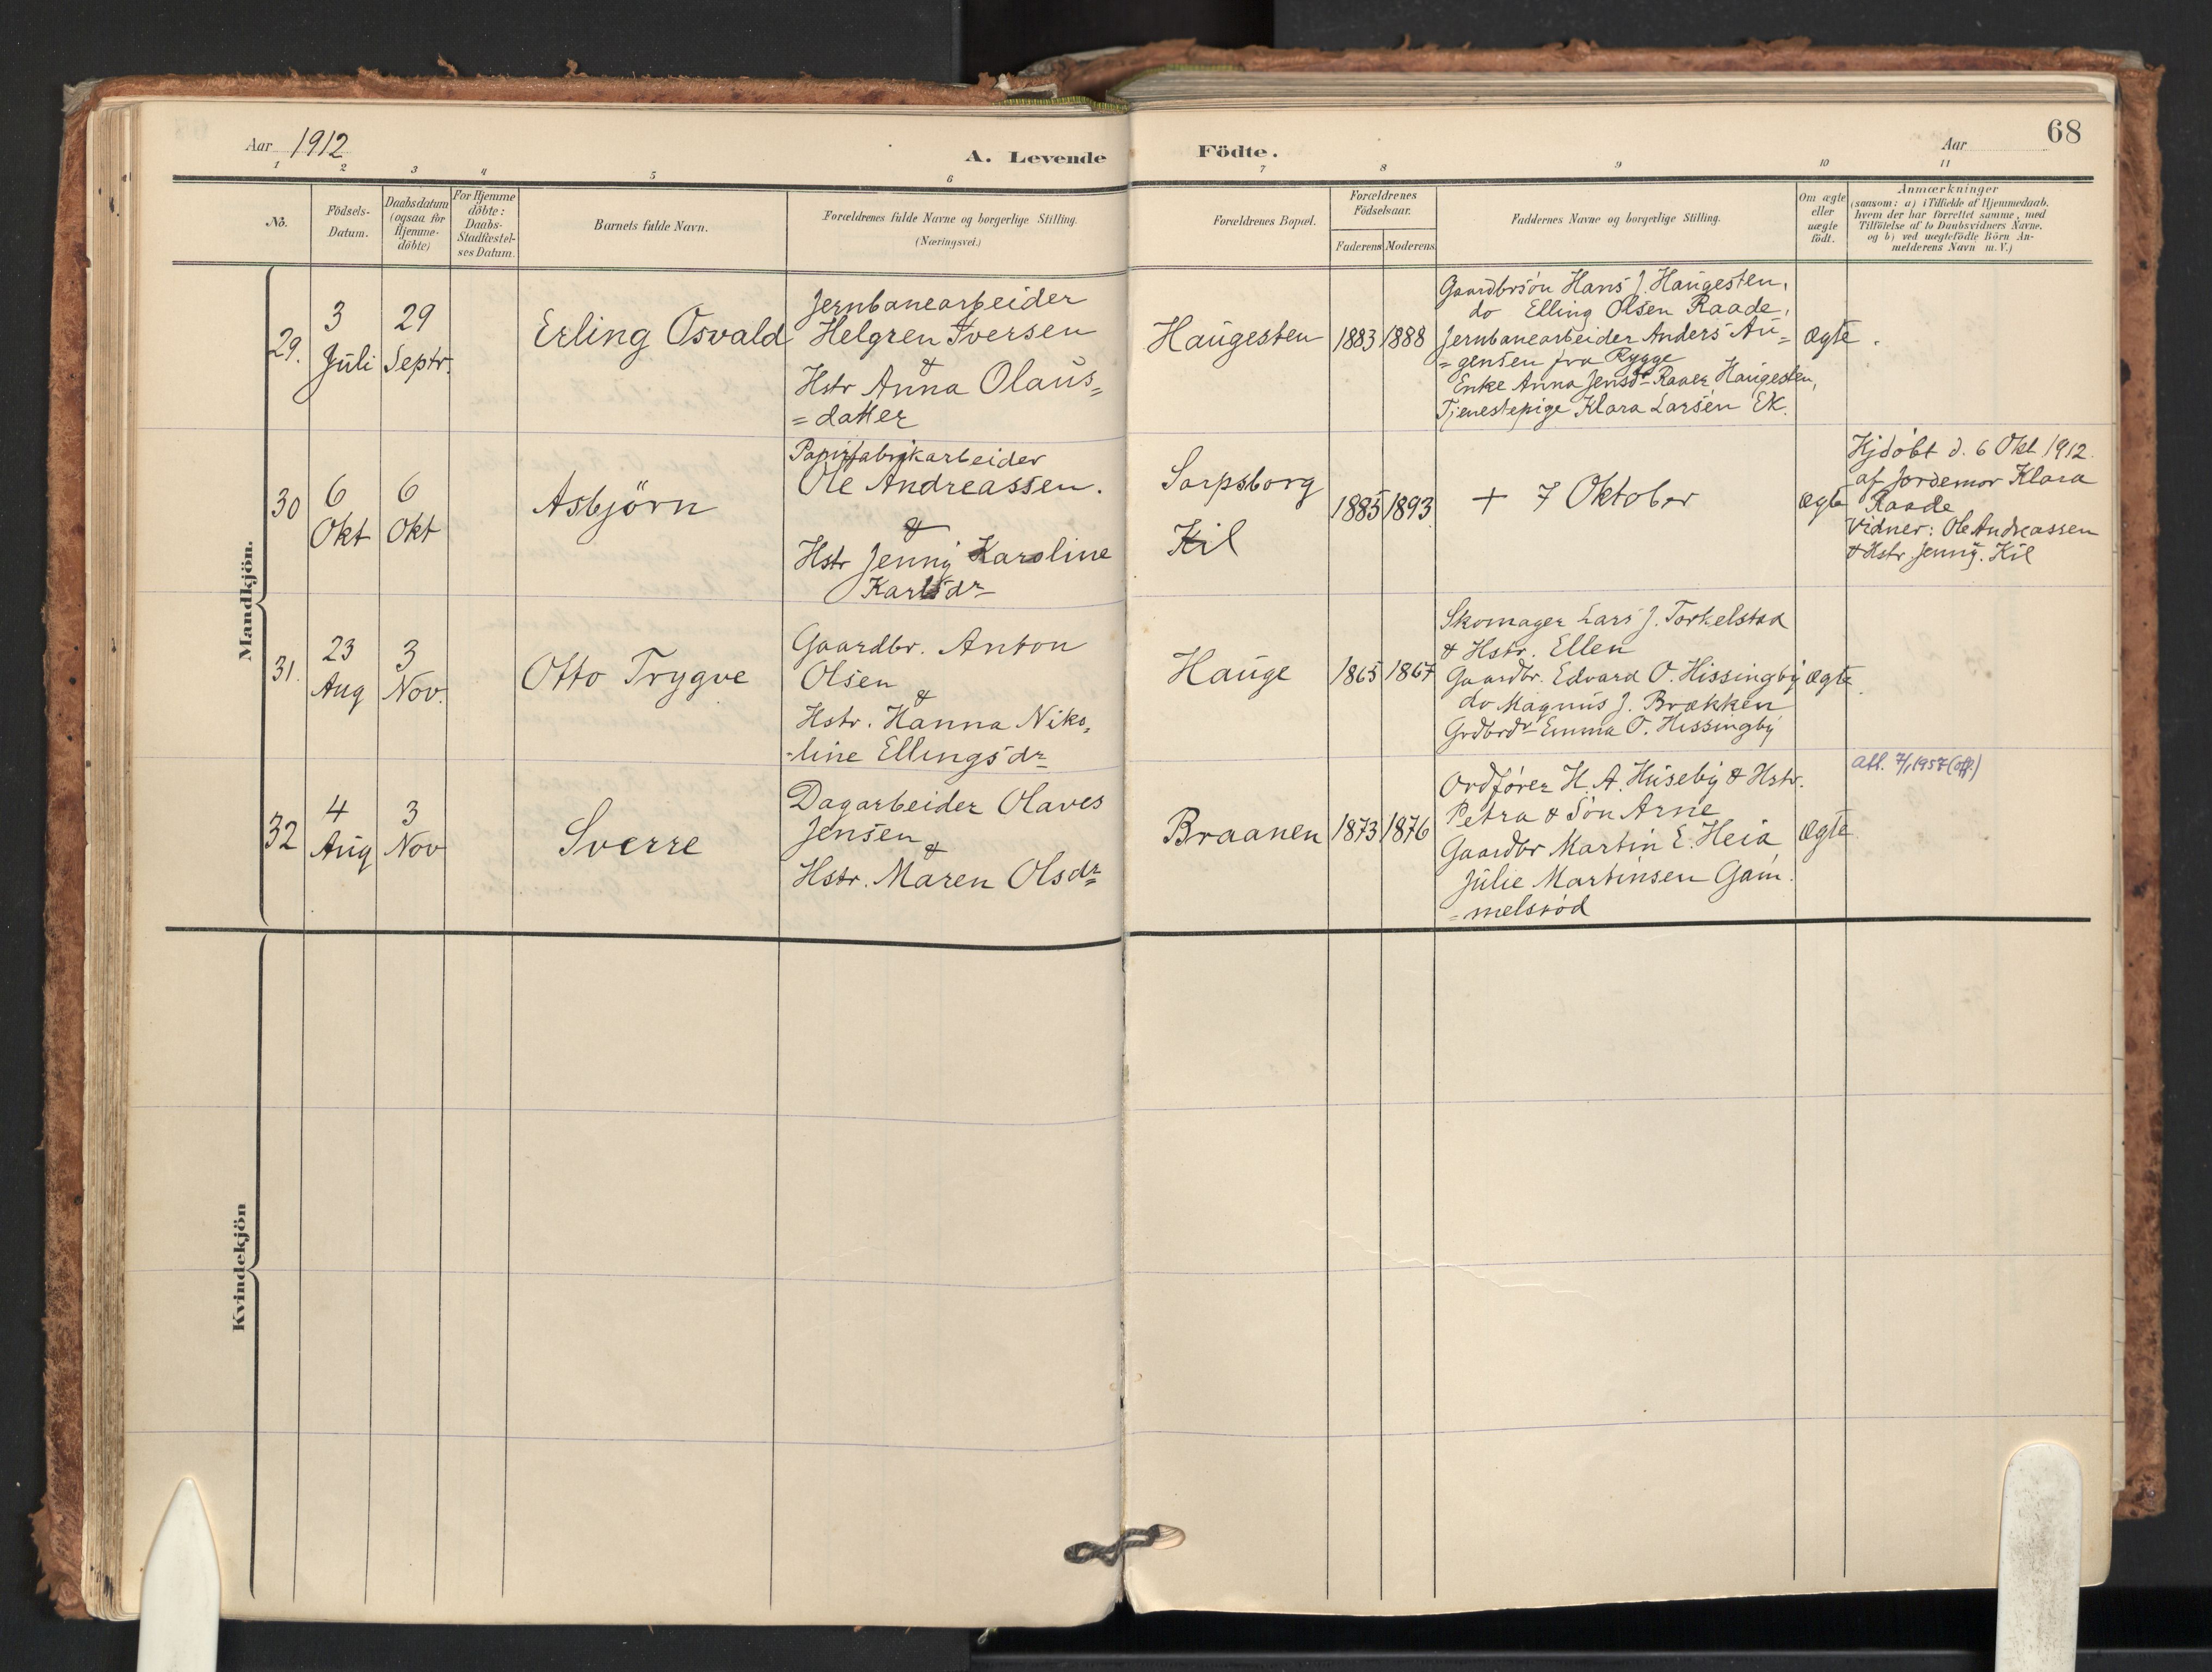 68
Aar 1912
A. Levende Födte.
Aar
1 2 3 4 5 6 7 8 9 10 11
No.
Födsels-
Datum.
Daabsdatum
(ogsaa for
Hjemme-
döbte)
For Hjemme
döbte:
Daabs-
Stadfæstel-
ses Datum.
Barnets fulde Navn.
Forældrenes fulde Navne og borgerlige Stilling.
(Næringsvei.)
Forældrenes Bopæl.
Forældrenes
Födselsaar.
Faderens Moderens
Faddernes Navne og borgerlige Stilling.
Om ægte
eller
uægte
födt.
Anmærkninger
(saasom: a) i Tilfælde af Hjemmedaab.
hvem der har forrettet samme, med
Tilföielse af to Daabsvidners Navne.
og b) ved uægtefödte Börn An-
melderens Navn m. V.)
Mandkjön.
29.
3
Juli
29
Septr.
Erling Osvald
Jernbanearbeider
Helgren Iversen
&
Hstr Anna Olaus=
=datter
Haugesten
1883 1888
Gaardbrsön Hans J. Haugesten,
do Elling Olsen Raade,
Jernbanearbeider Anders Au=
=gensen fra Rygge
Enke Anna Jensdr Raaer Haugesten,
Tjenestepige Klara Larsen Ek.
Ægte.
30
6
Okt
6
Okt
Asbjörn
Papirfabrikarbeider
Ole Andreassen.
&
Hstr Jenny Karoline
Karlsdr
Sarpsborg
Kil
1885 1893
+ 7 Oktober
Ægte
Hjdöbt d. 6 Okt 1912.
af Jordemor Klara
Raade
Vidner: Ole Andreassen
& Hstr Jenny. Kil
31.
23
Aug
3
Nov.
Otto Trygve
Gaardbr. Anton
Olsen
&
Hstr. Hanna Niko=
=line Ellingsdr
Hauge
1865 1867
Skomager Lars J. Torkelstad
& Hstr. Ellen
Gaardbr. Edvard O. Hissingby
do Magnus J. Brækken
Grdbrdr Emma O. Hissingby
Ægte
32
4
Aug
3
Nov
Sverre
Dagarbeider Olaves
Jensen
&
Hstr. Maren Olsdr
Braanen
1873 1876
Ordförer H. A. Huseby & Hstr.
Petra & Sön Arne
Gaardbr Martin E. Heia
Julie Martinsen Gam
=melsröd
Ægte
att. 7/1 1957 (off.)
Kvindekjön